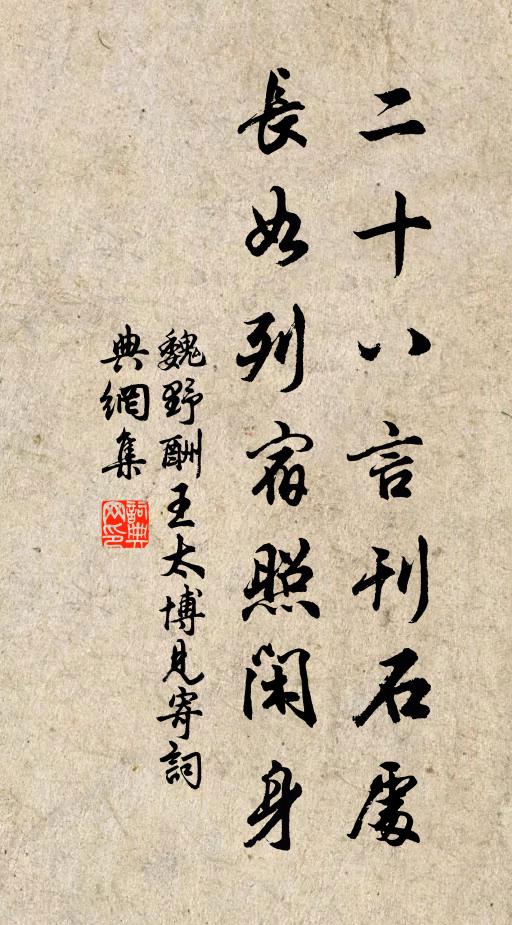 二十八言刊石處
長如列宿照閑身
魏野酬王太博見寄詞
典網集
詞典網印